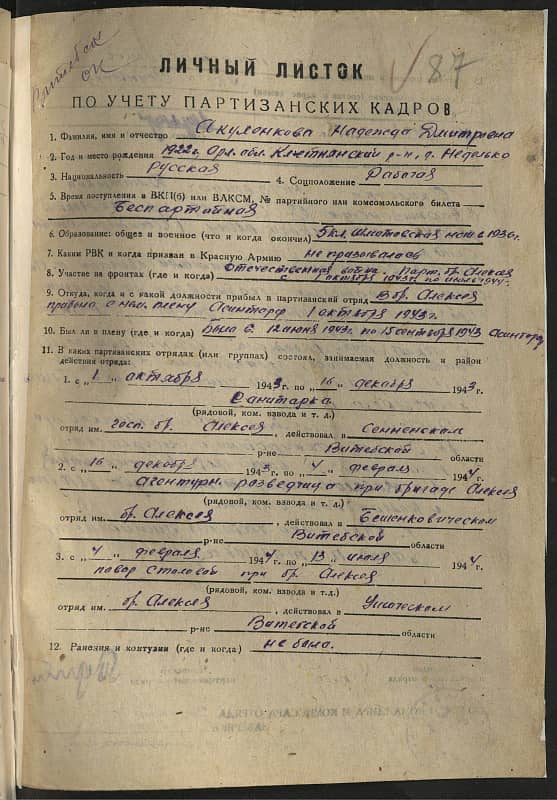 Витебск
ОК
87
ЛИЧНЫЙ ЛИСТОК
ПО УЧЕТУ ПАРТИЗАНСКИХ КАДРОВ
1. Фамилия, имя и отчество Акулонкова Надежда Дмитриевна
2. Год и место рождения 1922г. Орл. обл. Клетнянский р-н, д. Неделько
3. Национальность Русская 4. Соцположение Рабочая
5. Время поступления в ВКП(б) или ВЛКСМ, № партийного или комсомольского билета
Беспартийная
6. Образование: общее и военное (что и когда окончил) 5 кл. в 1936г.
7. Каким РВК и когда призван в Красную Армию не призывалась
8. Участие на фронтах (где и когда) Отечественная война Парт. бр. Алексея
с 1 октября 1943г. по июль 1944г.
9. Откуда, когда и с какой должности прибыл в партизанский отряд В бр. Алексея
прибыла с плену Осинторф 1 октября 1943г.
10. Был ли в плену (где и когда) Была с 12 июня 1943г. по 15 сентября 1943 Осинторф
11. В каких партизанских отрядах (или группах) состоял, занимаемая должность и район
действия отряда:
1. с „1" октября 1943 г. по „16" декабря 1943 г.
Санитарка
(рядовой, ком. взвода и т. д.)
отряд им. госп. бр. Алексея, действовал в Сенненском
р-не Витебской области
2. с „16" декабря 1943 г. по „4" февраля 1944 г.
Агентурн. разведчица при бригаде Алексея
(рядовой, ком. взвода и т. д.)
отряд им. бр. Алексея, действовал в Бешенковическом
р-не Витебской области
3. с „4" февраля 1944 г. по „13" июля 1944 г.
повар столовой при бр. Алексея
(рядовой, ком. взвода и т.д.)
отряд им. бр. Алексея, действовал в Ушачском
р-не Витебской области
12. Ранения и контузии (где и когда) не была.